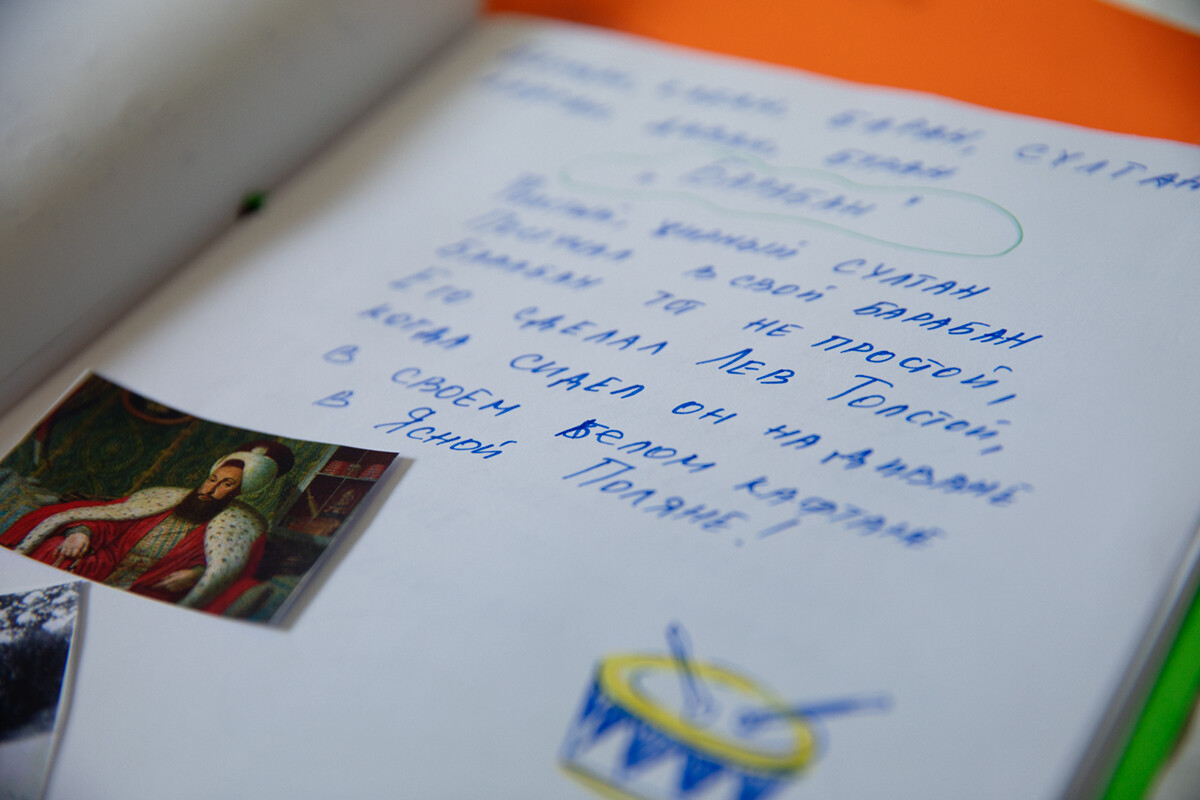 БАРАН, СУЛТАН
"БАРАБАН"
СУЛТАН
В СВОЙ БАРАБАН
БАРАБАН ТОТ НЕ ПРОСТОЙ,
ЕГО СДЕЛАЛ ЛЕВ ТОЛСТОЙ,
КОГДА СИДЕЛ ОН НА ДИВАНЕ
В СВОЕМ БЕЛОМ КАФТАНЕ
В ЯСНОЙ ПОЛЯНЕ.!